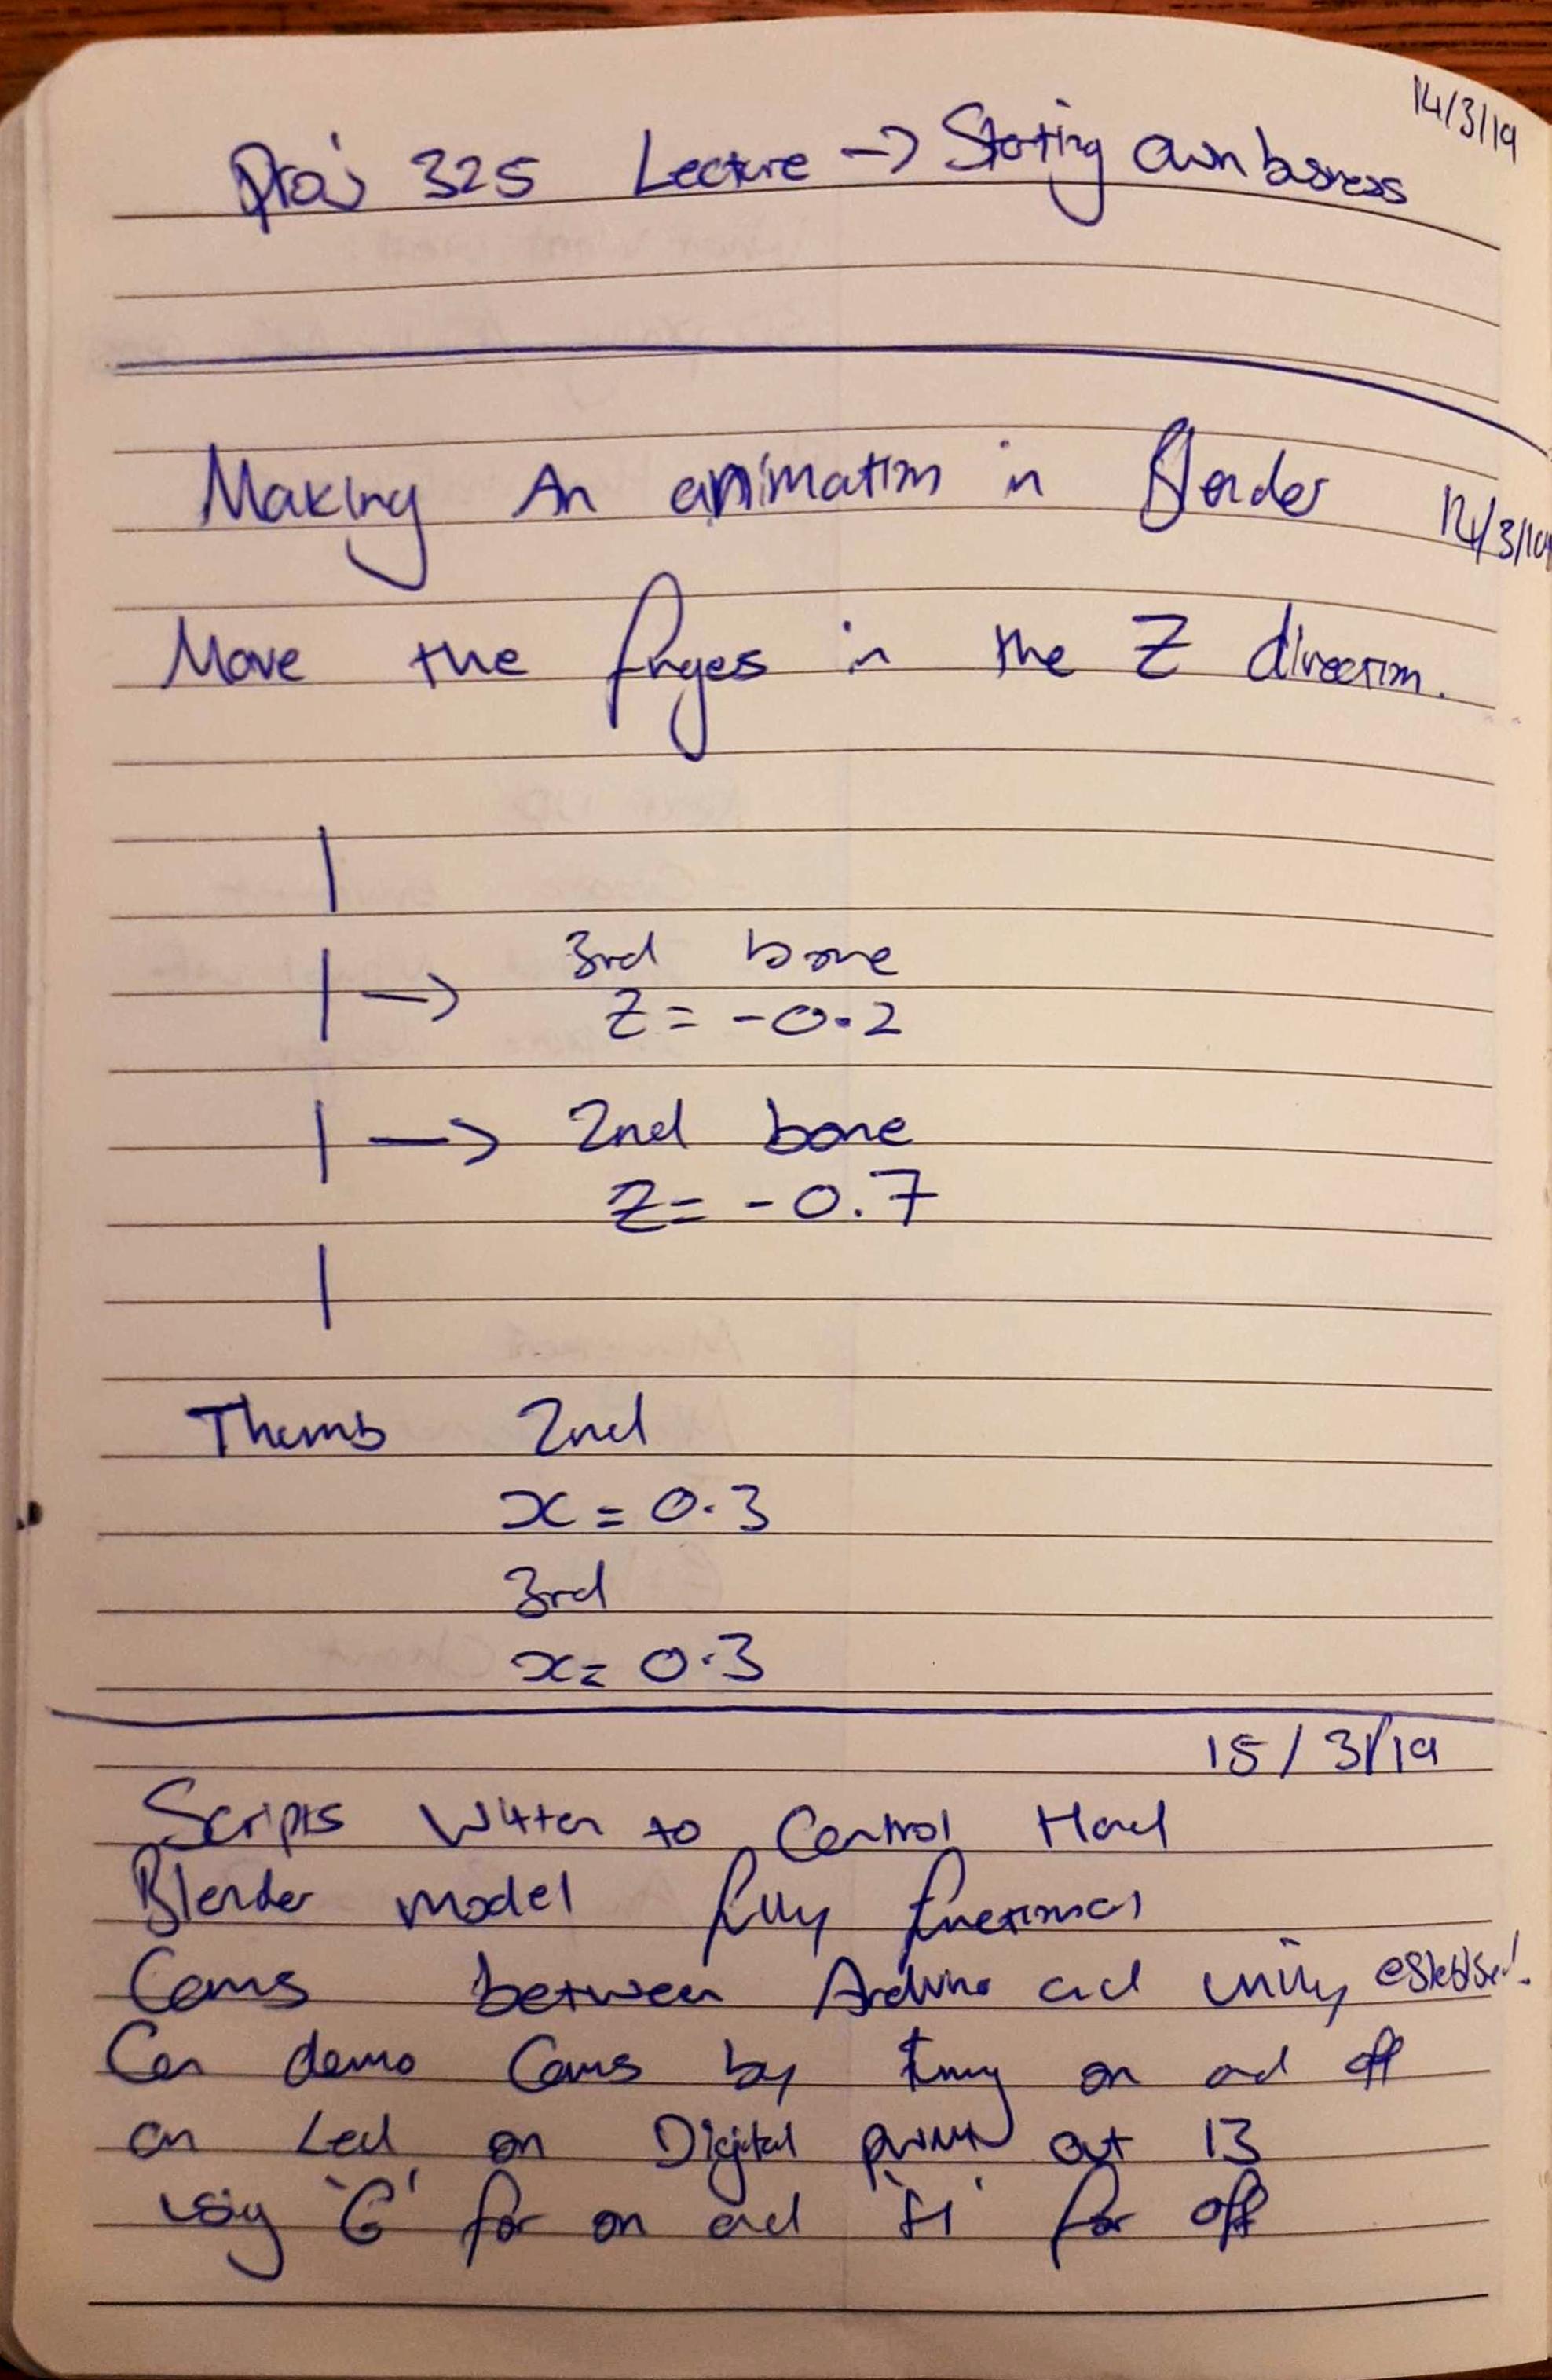 14/3/19
Proj 325 Lecture -> Starting own business
Making An animation in Blender 14/3/19
Move the fingers in the Z direction.
3rd bone
Z = -0.2
2nd bone
Z = -0.7
Thumb 2nd
x = 0.3
3rd
x = 0.3
15/3/19
Scripts Written to Control Hand
Blender model fully functional
Coms between Arduino and unity established.
Can demo Coms by turning on and off
an Led on Digital out 13
using 'G' for on and 'H' for off